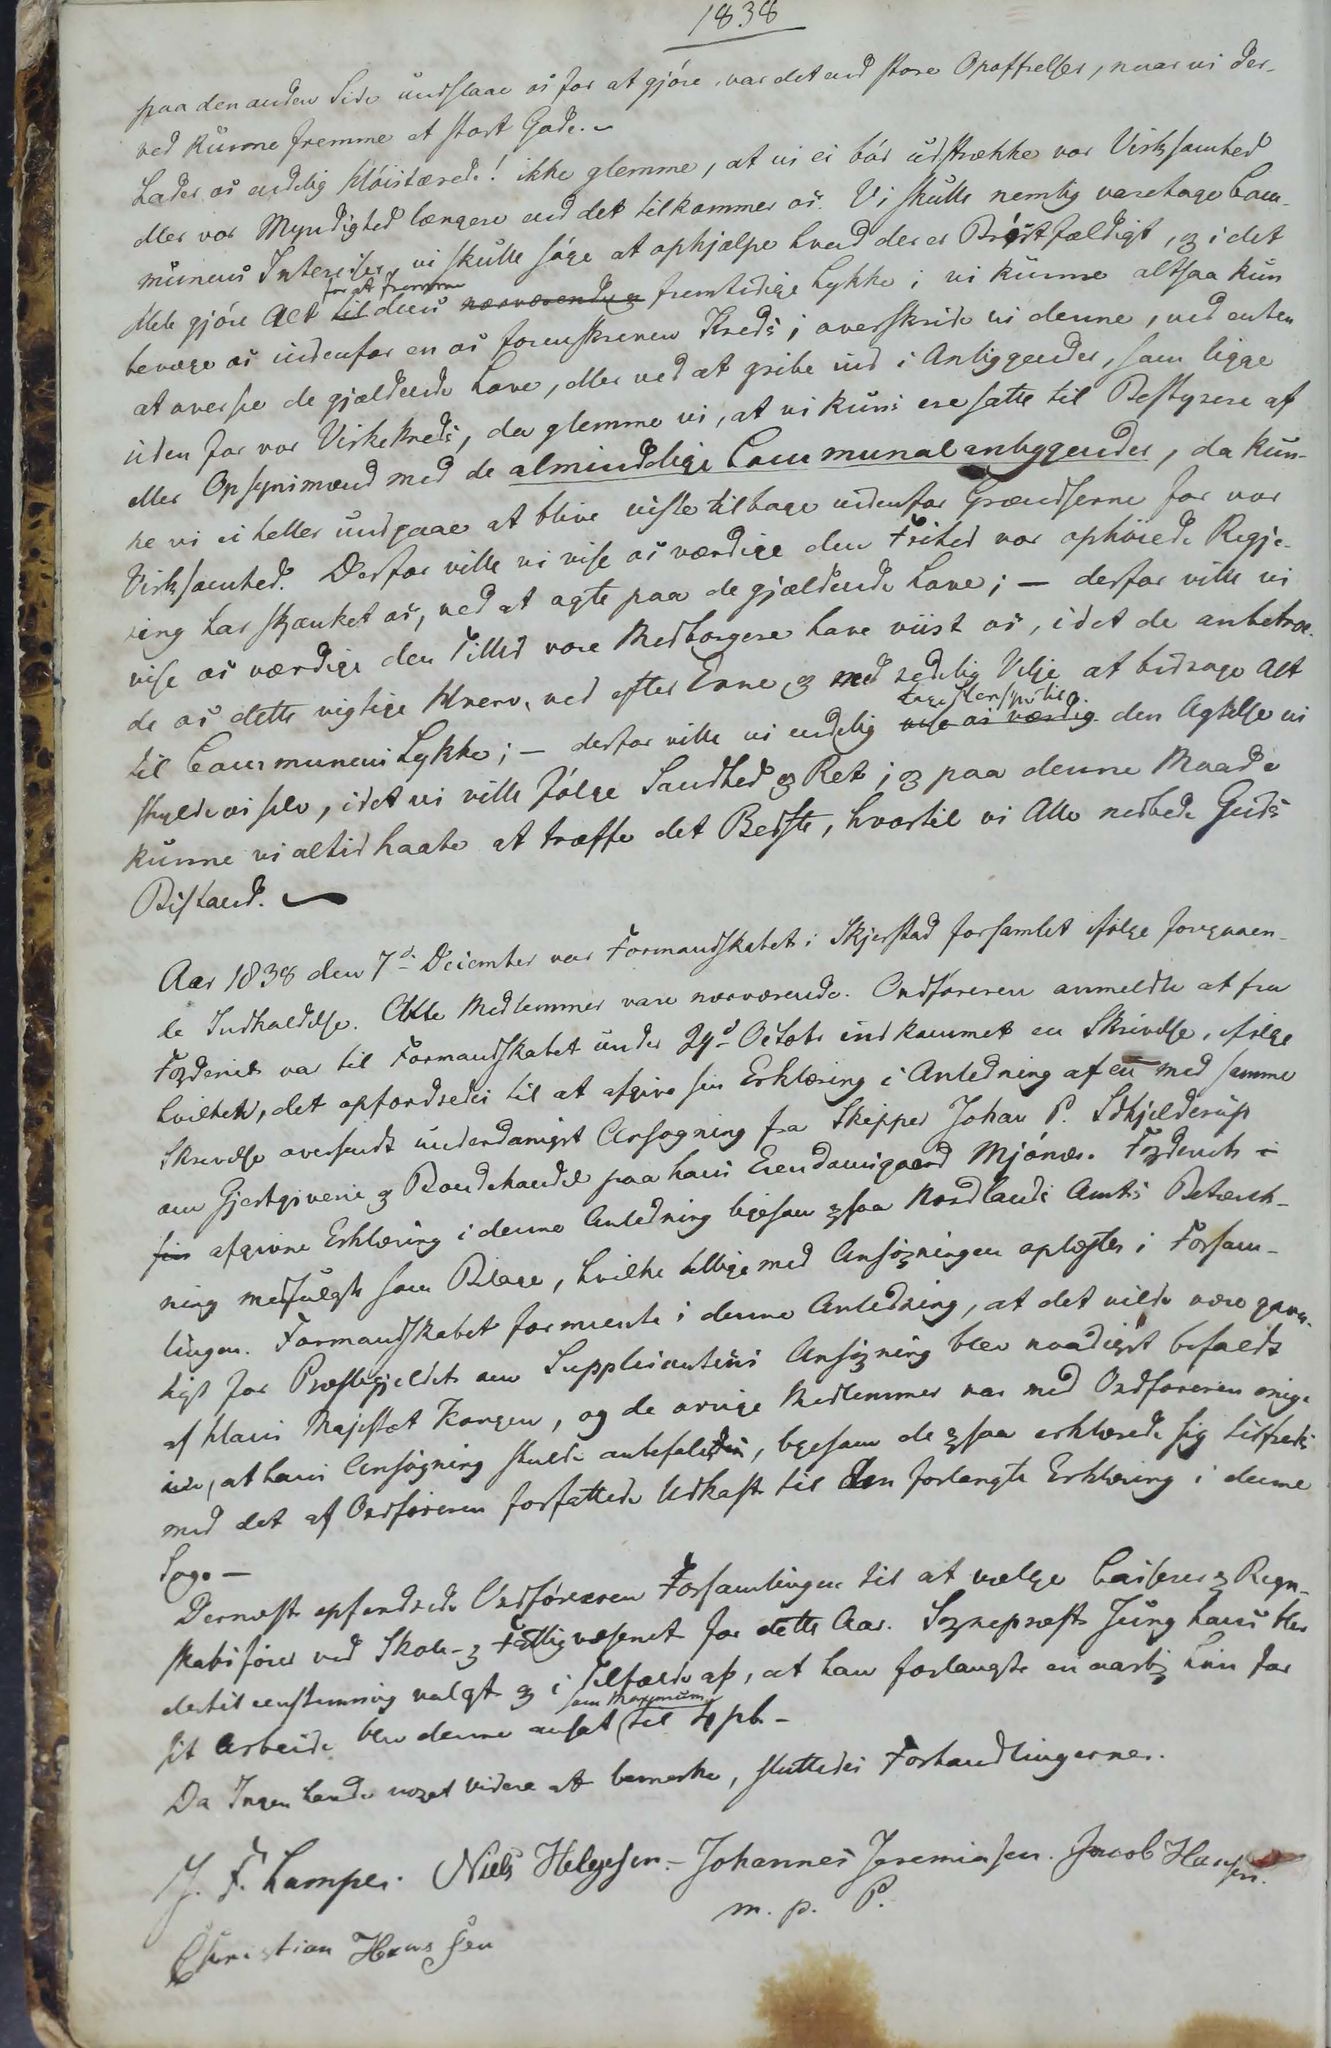 1838
paa den anden Side undslaae os for at gjöre, var det end store Opoffrelser, naar vi der-
ved kunne fremme et stort Gode.
Lader os endelig Höistærede! ikke glemme, at vi ei bör udstrække vor Virksomhed
eller vor Myndighed længere end det tilkommer os. Vi skulle nemlig varetage Com-
munens Interesser, vi skulle söge at ophjælpe hvad der er Bröstfældigt, og i det
Hele gjöre Alt til for at fremme dens nærværende og fremtidige Lykke; vi kunne altsaa kun
bevæge os indenfor en os foreskreven Kreds; overskride vi denne, ved enten
at oversee de gjældende Love, eller ved at gribe ind i Anliggender, som ligge
uden for vor Virkekreds, da glemme vi, at vi kuns ere satte til Bestyrere af
eller Opsynsmænd med de almindelige Communalanliggender, da kun-
ne vi ei heller undgaae at blive viste tilbage indenfor Grændserne for vor
Virksomhed. Derfor ville vi vise os værdige den Frihed vor ophöiede Regje-
ring har skjænket os, ved at agte paa de gjældende Love; — derfor ville vi
vise os værdige den Tillid vore Medborgere have viist os, idet de anbetroe-
de os dette vigtige Hverv, ved efter Evne og med redelig Vilje at bidrage Alt
til Communens Lykke; — derfor ville vi endelig vise os værdig tage Hensyn til den Agtelse vi
skylde os selv, idet vi ville fölge Sandhed og Ret; og paa denne Maade
kunne vi altid haabe at træffe det Bedste, hvortil vi Alle nedbede Guds
Bistand.
Aar 1838 den 7de December var Formandskabet i Skjerstad forsamlet ifölge foregaaen-
de Indkaldelse. Otte Medlemmer vare nærværende. Ordföreren anmeldte at fra
Fogderiet var til Formandskabet under 29de Octobr indkommet en Skrivelse, ifölge
hvilken, det opfordredes til at afgive sin Erklæring i Anledning af en med samme
Skrivelse oversendt underdanigst Ansögning fra Skipper Johan P. Schjelderup
om Gjestgiverie og Bondehandel paa hans Eiendomsgaard Mjönes. Fogderiets i
sin afgivne Erklæring i denne Anledning ligesom ogsaa Nordlands Amts Betænk-
ning medfulgte som Bilage, hvilke tillige med Ansögningen oplæstes i Forsam-
lingen. Formandskabet formeente i denne Anledning, at det vilde være gavn-
ligt for Præstegjeldet om Supplicantens Ansögning blev naadigst befalet
af Hans Majestæt Kongen, og de övrige Medlemmer var med Ordföreren enige
i, at hans Ansögning skulde anbefales, ligesom de ogsaa erklærede sig tilfreds
med det af Ordföreren forfattede Udkast til den forlangte Erklæring i denne
Sag. —
Dernæst opfordrede Ordföreren Forsamlingen til at vælge Casserer og Regn-
skabsförer ved Skole- og Fattigvæsenet for dette Aar. Sognepræst Jünghans blev
dertil eenstemmig valgt og i Tilfælde af, at han forlangte en aarlig Lön for
sit Arbeide blev denne ansat som Maximum til 4 spd. —
Da Ingen havde noget videre at bemærke, sluttedes Forhandlingerne.
J. F. Lampe. Niels Helgesen. — Johannes Jeremiasen. Jacob Hansen.
m. p. P.
Christian Hansen